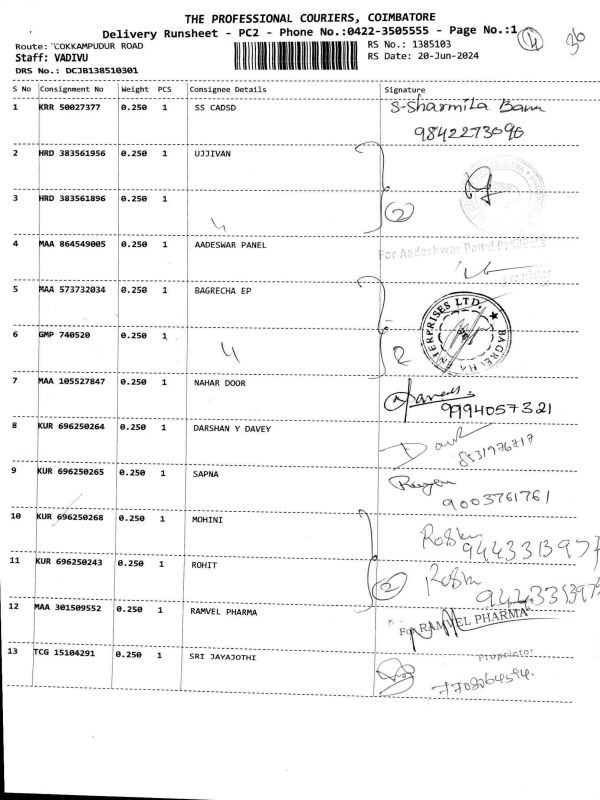 THE PROFESSIONAL COURIERS, COIMBATORE
Delivery Runsheet - PC2 - Phone No.:0422-3505555 - Page No.:1
Route: COKKAMPUDUR ROAD
RS No.: 1385103
Staff: VADIVU
RS Date: 20-Jun-2024
DRS No.: DCJB138510301
S No Consignment No Weight PCS Consignee Details Signature
1 KRR 50027377 0.250 1 SS CADSD S-Sharmila Banu
9842273096
2 HRD 383561956 0.250 1 UJJIVAN
3 HRD 383561896 0.250 1
2
4 MAA 864549005 0.250 1 AADESWAR PANEL For Aadeshwar Panel Products
Proprietor
5 MAA 573732034 0.250 1 BAGRECHA EP
ENTERPRISES LTD.
6 GMP 740520 0.250 1
2
7 MAA 105527847 0.250 1 NAHAR DOOR
9994057321
8 KUR 696250264 0.250 1 DARSHAN Y DAVEY
8531976717
9 KUR 696250265 0.250 1 SAPNA
9003761761
10 KUR 696250268 0.250 1 MOHINI
11 KUR 696250243 0.250 1 ROHIT
2
12 MAA 301509552 0.250 1 RAMVEL PHARMA For RAMVEL PHARMA
Proprietor
13 TCG 15104291 0.250 1 SRI JAYAJOTHI
7708064594.